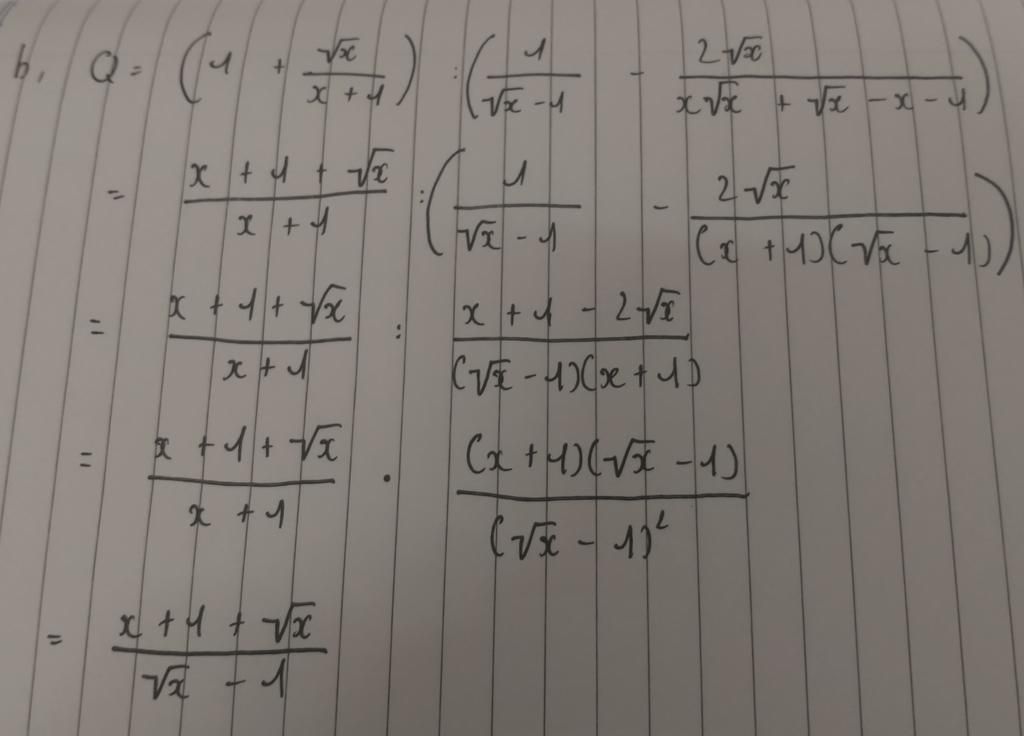 b, Q = (1 + √x/(x + 1)) : (1/(√x - 1) - 2√x/(x√x + √x - x - 1))
= (x + 1 + √x)/(x + 1) : (1/(√x - 1) - 2√x/((x + 1)(√x - 1)))
= (x + 1 + √x)/(x + 1) : (x + 1 - 2√x)/((√x - 1)(x + 1))
= (x + 1 + √x)/(x + 1) . ((x + 1)(√x - 1))/(√x - 1)²
= (x + 1 + √x)/(√x - 1)